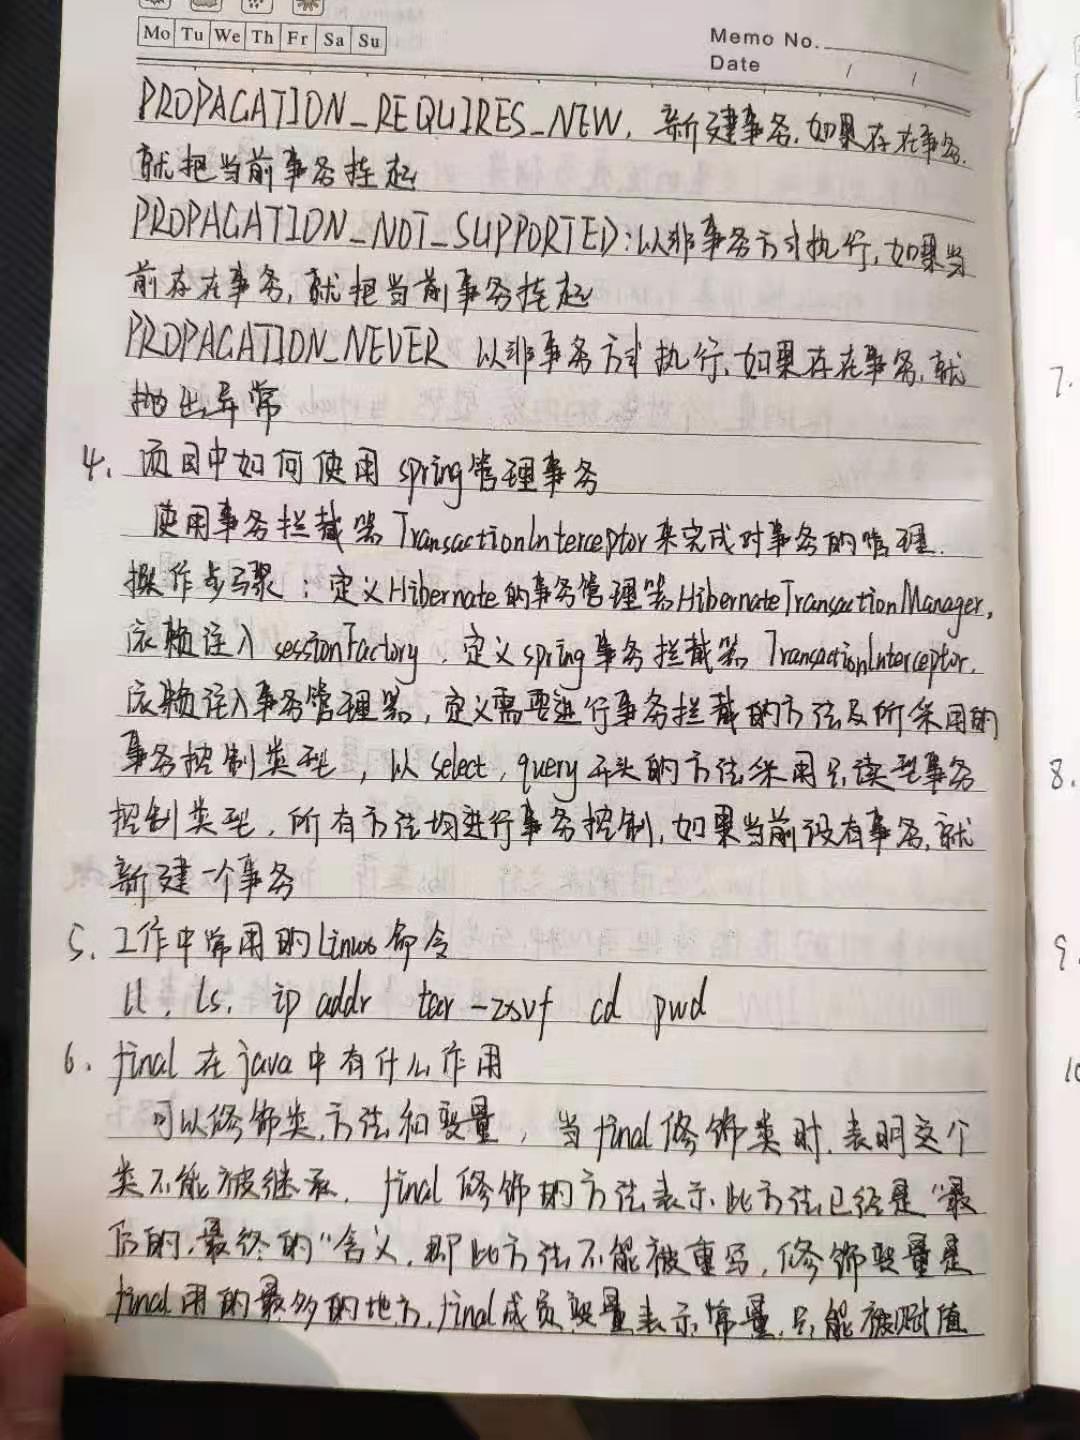 Mo Tu We Th Fr Sa Su
Memo No.
Date / /
PROPAGATION_REQUIRES_NEW, 新建事务,如果存在事务,
就把当前事务挂起
PROPAGATION_NOT_SUPPORTED:以非事务方式执行,如果当
前存在事务,就把当前事务挂起
PROPAGATION_NEVER 以非事务方式执行,如果存在事务,就
抛出异常
4. 项目中如何使用spring管理事务
使用事务拦截器TransactionInterceptor来完成对事务的管理.
操作步骤:定义Hibernate的事务管理器HibernateTransactionManager,
依赖注入sessionFactory,定义spring事务拦截器TransactionInterceptor,
依赖注入事务管理器,定义需要进行事务拦截的方法及所采用的
事务控制类型,以select,query开头的方法采用只读型事务
控制类型,所有方法均进行事务控制,如果当前没有事务,就
新建一个事务
5. 工作中常用的Linux命令
ll, ls, ip addr tar -zxvf cd pwd
6. final在java中有什么作用
可以修饰类,方法和变量,当final修饰类时,表明这个
类不能被继承, final修饰的方法表示此方法已经是"最
后的,最终的"含义,即此方法不能被重写,修饰变量是
final用的最多的地方,final成员变量表示常量,只能被赋值
7.
8.
9.
10